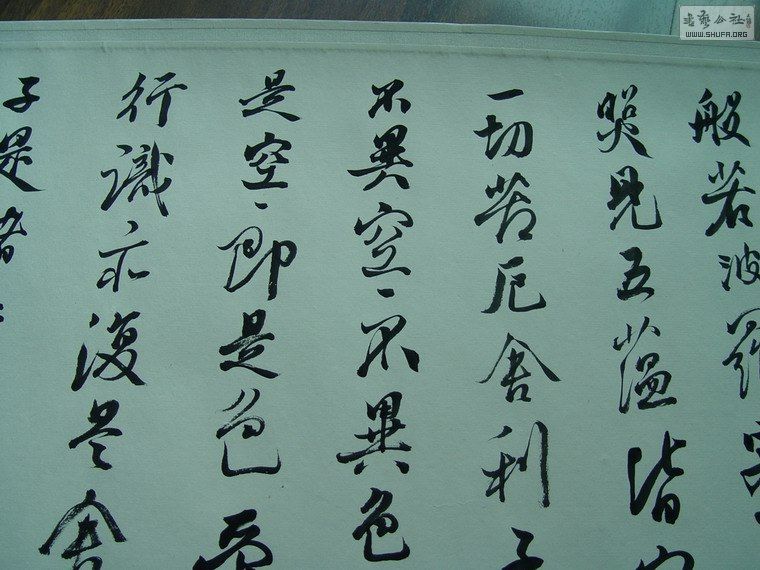 般若波羅蜜
照見五蘊皆空
一切苦厄舍利子
不異空々不異色
是空々即是色受
行識亦復是舍
子是諸
書藝公社
WWW.SHUFA.ORG